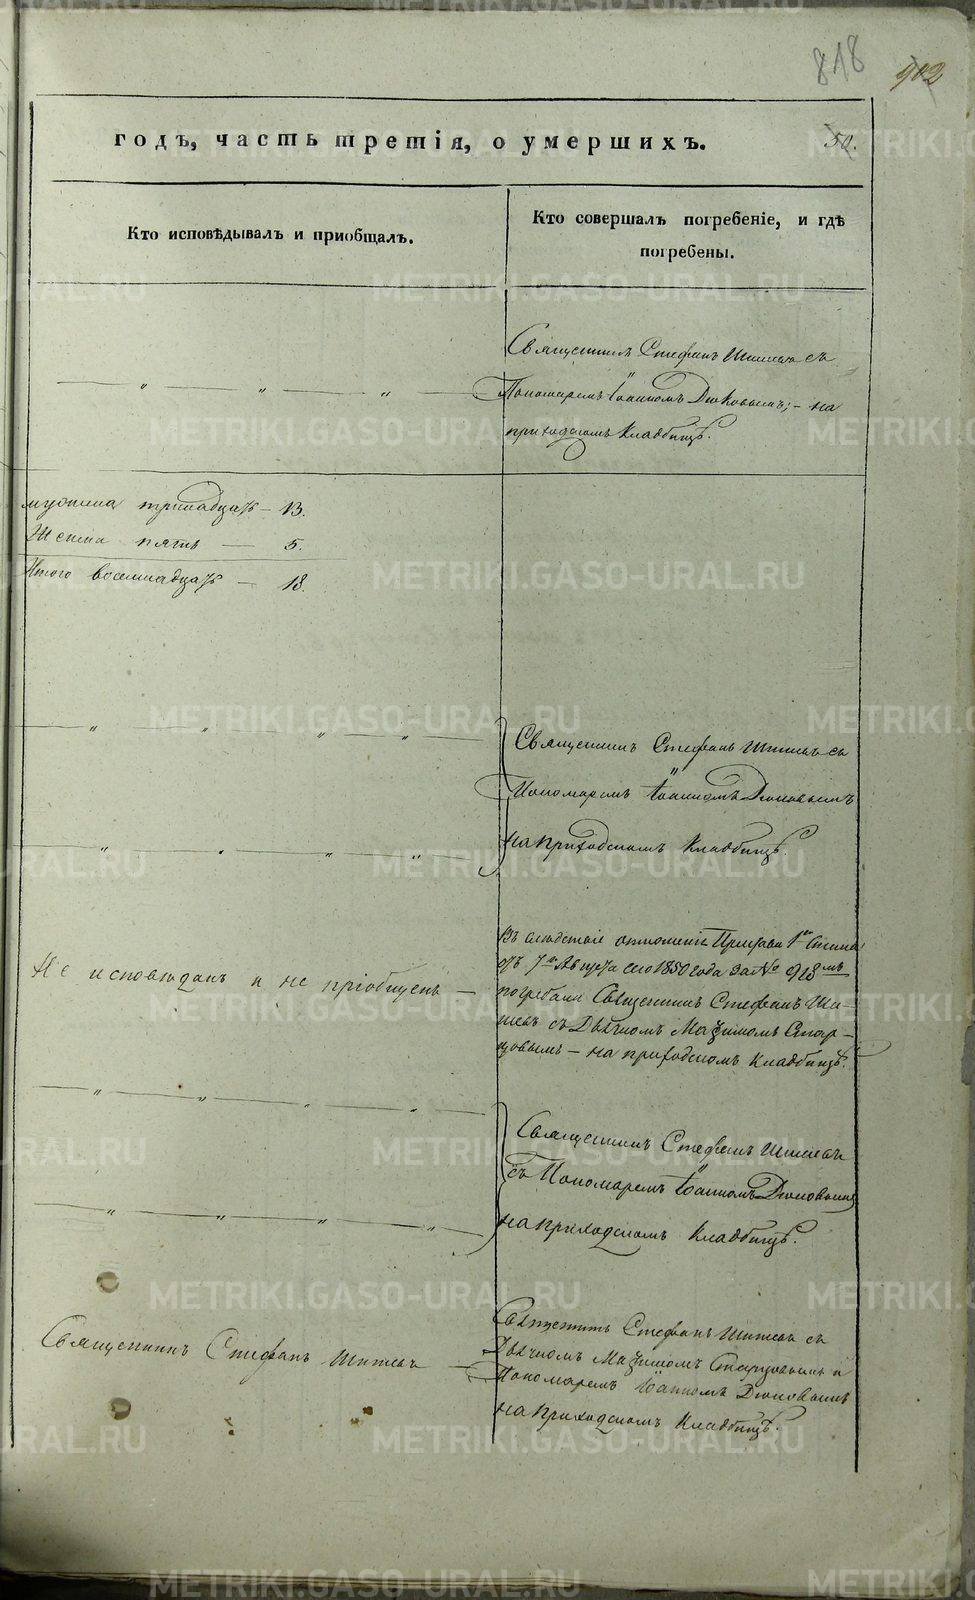 818 902
годъ, часть третія, о умершихъ. 50.
Кто исповѣдывалъ и пріобщалъ.
Кто совершалъ погребеніе, и гдѣ
погребены.
Священникъ Стефанъ съ
Пономаремъ Іоанномъ Дюковымъ; – на
приходскомъ кладбищѣ.
мужеска тринадцать – 13.
Женска пять — 5.
Итого восемнадцать — 18.
Священникъ Стефанъ Шишевъ съ
Пономаремъ Іоанномъ Дюковымъ
на приходскомъ кладбищѣ.
Не исповѣданъ и не пріобщенъ —
Въ слѣдствіе отношенія 1го Стана
отъ 7го Августа сего 1850 года за № 918мъ
погребали Священникъ Стефанъ Ши-
шевъ съ Дьячкомъ Максимомъ Стар-
цовымъ – на приходскомъ кладбищѣ.
Священникъ Стефанъ Шишевъ
съ Пономаремъ Іоанномъ Дюковымъ
на приходскомъ кладбищѣ.
Священникъ Стефанъ Шишевъ —
Священникъ Стефанъ Шишевъ съ
Дьячкомъ Максимомъ Старцовымъ и
Пономаремъ Іоанномъ Дюковымъ
на приходскомъ кладбищѣ.
METRIKI.GASO-URAL.RU